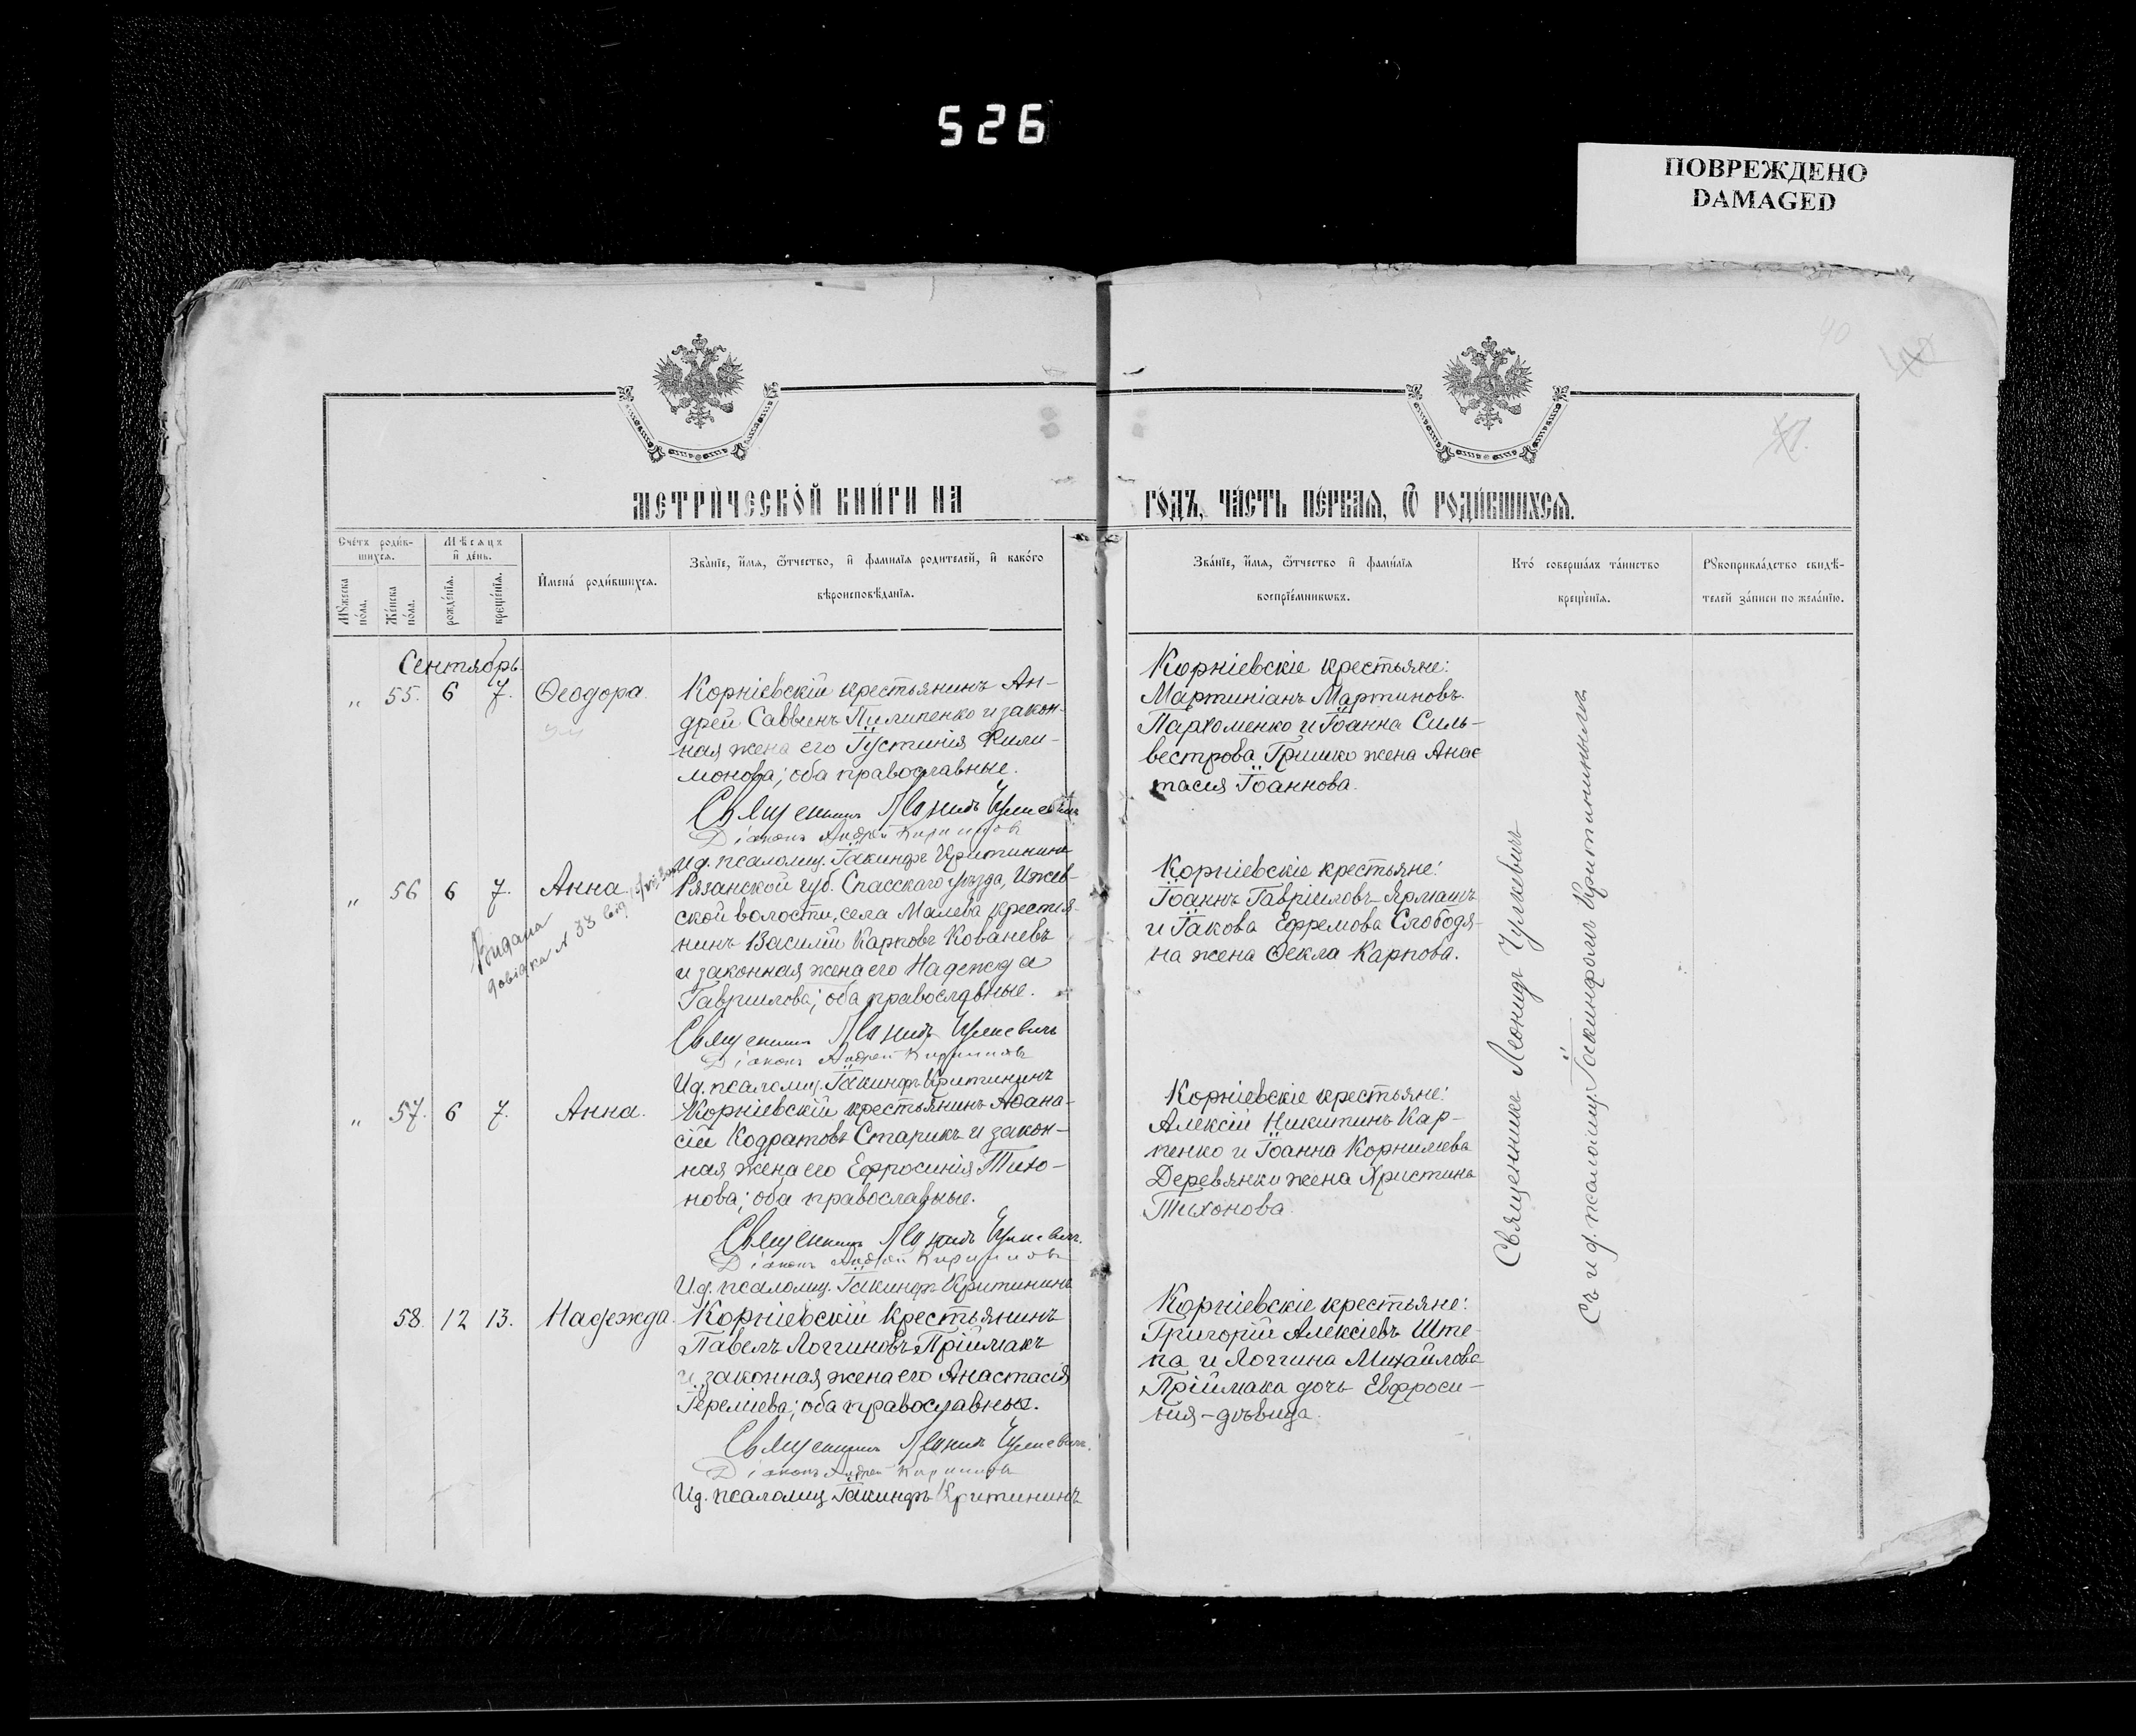 526
ПОВРЕЖДЕНО
DAMAGED
40
МЕТРИЧЕСКОЙ КНИГИ НА
ГОДЪ, ЧАСТЬ ПЕРВАЯ, Ѿ РОДИВШИХСЯ.
Счетъ родив-
шихся.
Мѣсяцъ
и день.
Мꙋжеска
пола.
Женска
пола.
рожденїя.
крещенїя.
Имена родившихся.
Званїе, имя, ѿтчество, и фамилїя родителей, и какого
вѣроисповѣданїя.
Званїе, имя, ѿтчество и фамилїя
воспрїемниковъ.
Кто совершалъ таинство
крещенїя.
Рꙋкоприкладство свидѣ-
телей записи по желанїю.
Сентябрь.
„ 55. 6 7. Ѳеодора.
Корніевскій крестьянинъ Ан-
дрей Саввинъ Пилипенко и закон-
ная жена его Іустинія Фили-
монова; оба православные.
Священникъ Леонидъ Чулкевичъ
Діаконъ Андрей Кириллов
Ид. псаломщ. Іакинфъ Критининъ
Корніевскіе крестьяне:
Мартиніанъ Мартиновъ
Пархоменко и Іоанна Силь-
вестрова Гришко жена Анас
тасія Іоаннова.
„ 56 6 7. Анна
Видана
довідка N 33 від
Рязанской губ. Спасскаго уѣзда, Ижев-
ской волости, села Малева крестья-
нинъ Василій Карповъ Кованевъ
и законная жена его Надежда
Гавриилова; оба православные.
Священникъ Леонидъ Чулкевичъ
Діаконъ Андрей Кириллов
Ид. псаломщ. Іакинфъ Критининъ
Корніевскіе крестьяне:
Іоаннъ Гавріиловъ Ярмашъ
и Іакова Ефремова Слободя-
на жена Ѳекла Карпова.
„ 57. 6 7. Анна.
Корніевскій крестьянинъ Аѳана-
сій Кодратовъ Старикъ и закон-
ная жена его Ефросинія Тихо-
нова; оба православные.
Священникъ Леонидъ Чулкевичъ.
Діаконъ Андрей Кириллов
Ид. псаломщ. Іакинфъ Критининъ
Корніевскіе крестьяне:
Алексій Никитинъ Кар-
пенко и Іоанна Корнилева
Деревянки жена Христина
Тихонова.
58. 12 13. Надежда.
Корніевскій крестьянинъ
Павелъ Логгиновъ Пріймакъ
и законная жена его Анастасія
Іереміева; оба православные.
Священникъ Леонидъ Чулкевичъ.
Діаконъ Андрей Кириллов
Ид. псаломщ Іакинфъ Критининъ
Корніевскіе крестьяне:
Григорій АлексіевъШте-
па и Логгина Михайлова
Пріймака дочь Евфроси-
нія-дѣвица.
Священникъ Леонидъ Чулкевичъ
Съ и д. псаломщ. Іакинфомъ Критининымъ